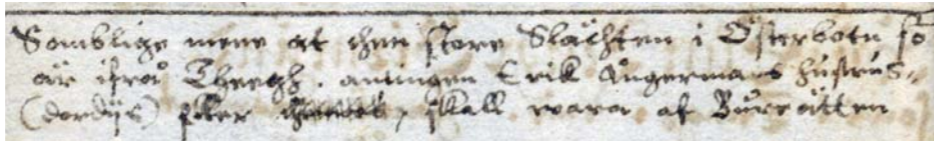 Somblige mene at then store Slächten i Österbotn så
är ifrå Theegh, anningen Erik Ångermans hustrus
(dordijs) eller , skall wara af Bureätten